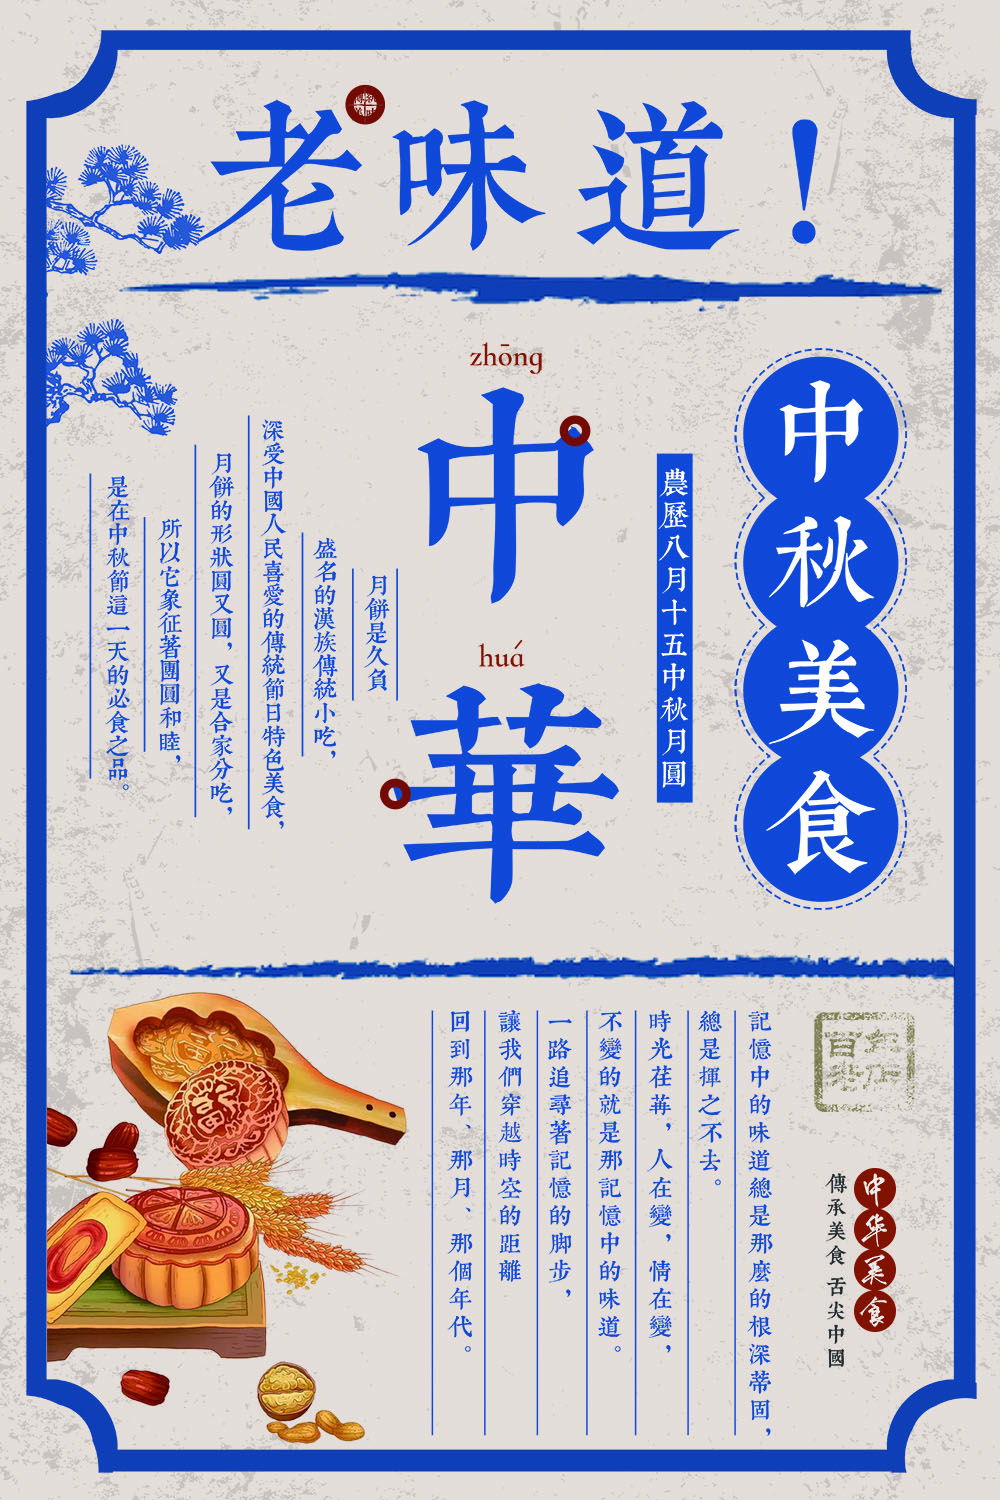 老味道！
中秋美食
農歷八月十五中秋月圓
zhōng
中
huá
華
月餅是久負
盛名的漢族傳統小吃，
深受中國人民喜愛的傳統節日特色美食，
月餅的形狀圓又圓，又是合家分吃，
所以它象征著團圓和睦，
是在中秋節這一天的必食之品。
中华美食
傳承美食 舌尖中國
記憶中的味道總是那麼的根深蒂固，
總是揮之不去。
時光荏苒，人在變，情在變，
不變的就是那記憶中的味道。
一路追尋著記憶的脚步，
讓我們穿越時空的距離
回到那年、那月、那個年代。